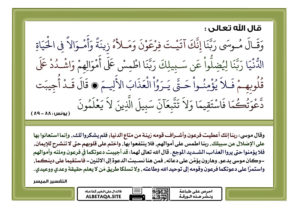 قال الله تعالى :
وَقَالَ مُوسَى رَبَّنَا إِنَّكَ آتَيْتَ فِرْعَوْنَ وَمَلَأَهُ زِينَةً وَأَمْوَالًا فِي الْحَيَاةِ
الدُّنْيَا رَبَّنَا لِيُضِلُّوا عَن سَبِيلِكَ رَبَّنَا اطْمِسْ عَلَى أَمْوَالِهِمْ وَاشْدُدْ عَلَى
قُلُوبِهِمْ فَلَا يُؤْمِنُوا حَتَّى يَرَوُا الْعَذَابَ الْأَلِيمَ قَالَ قَدْ أُجِيبَت
دَّعْوَتُكُمَا فَاسْتَقِيمَا وَلَا تَتَّبِعَانِّ سَبِيلَ الَّذِينَ لَا يَعْلَمُونَ
(يونس: ٨٨ - ٨٩)
وقال موسى: ربنا إنك أعطيت فرعون وأشراف قومه زينة من متاع الدنيا، فلم يشكروا لك، وإنما استعانوا بها
على الإضلال عن سبيلك، ربنا اطمس على أموالهم، فلا ينتفعوا بها، واختم على قلوبهم حتى لا تنشرح للإيمان،
فلا يؤمنوا حتى يروا العذاب الشديد الموجع. قال الله تعالى لهما: قد أجيبت دعوتكما في فرعون وملئه وأموالهم
-وكان موسى يدعو، وهارون يؤمن على دعائه، فمن هنا نسبت الدعوة إلى الاثنين- فاستقيما على دينكما،
واستمرا على دعوتكما فرعون وقومه إلى توحيد الله وطاعته، ولا تسلكا طريق من لا يعلم حقيقة وعدي ووعيدي.
التفسير الميسر
احرص على طباعة
ونشر هذه البطاقة
ALBETAQA.SITE